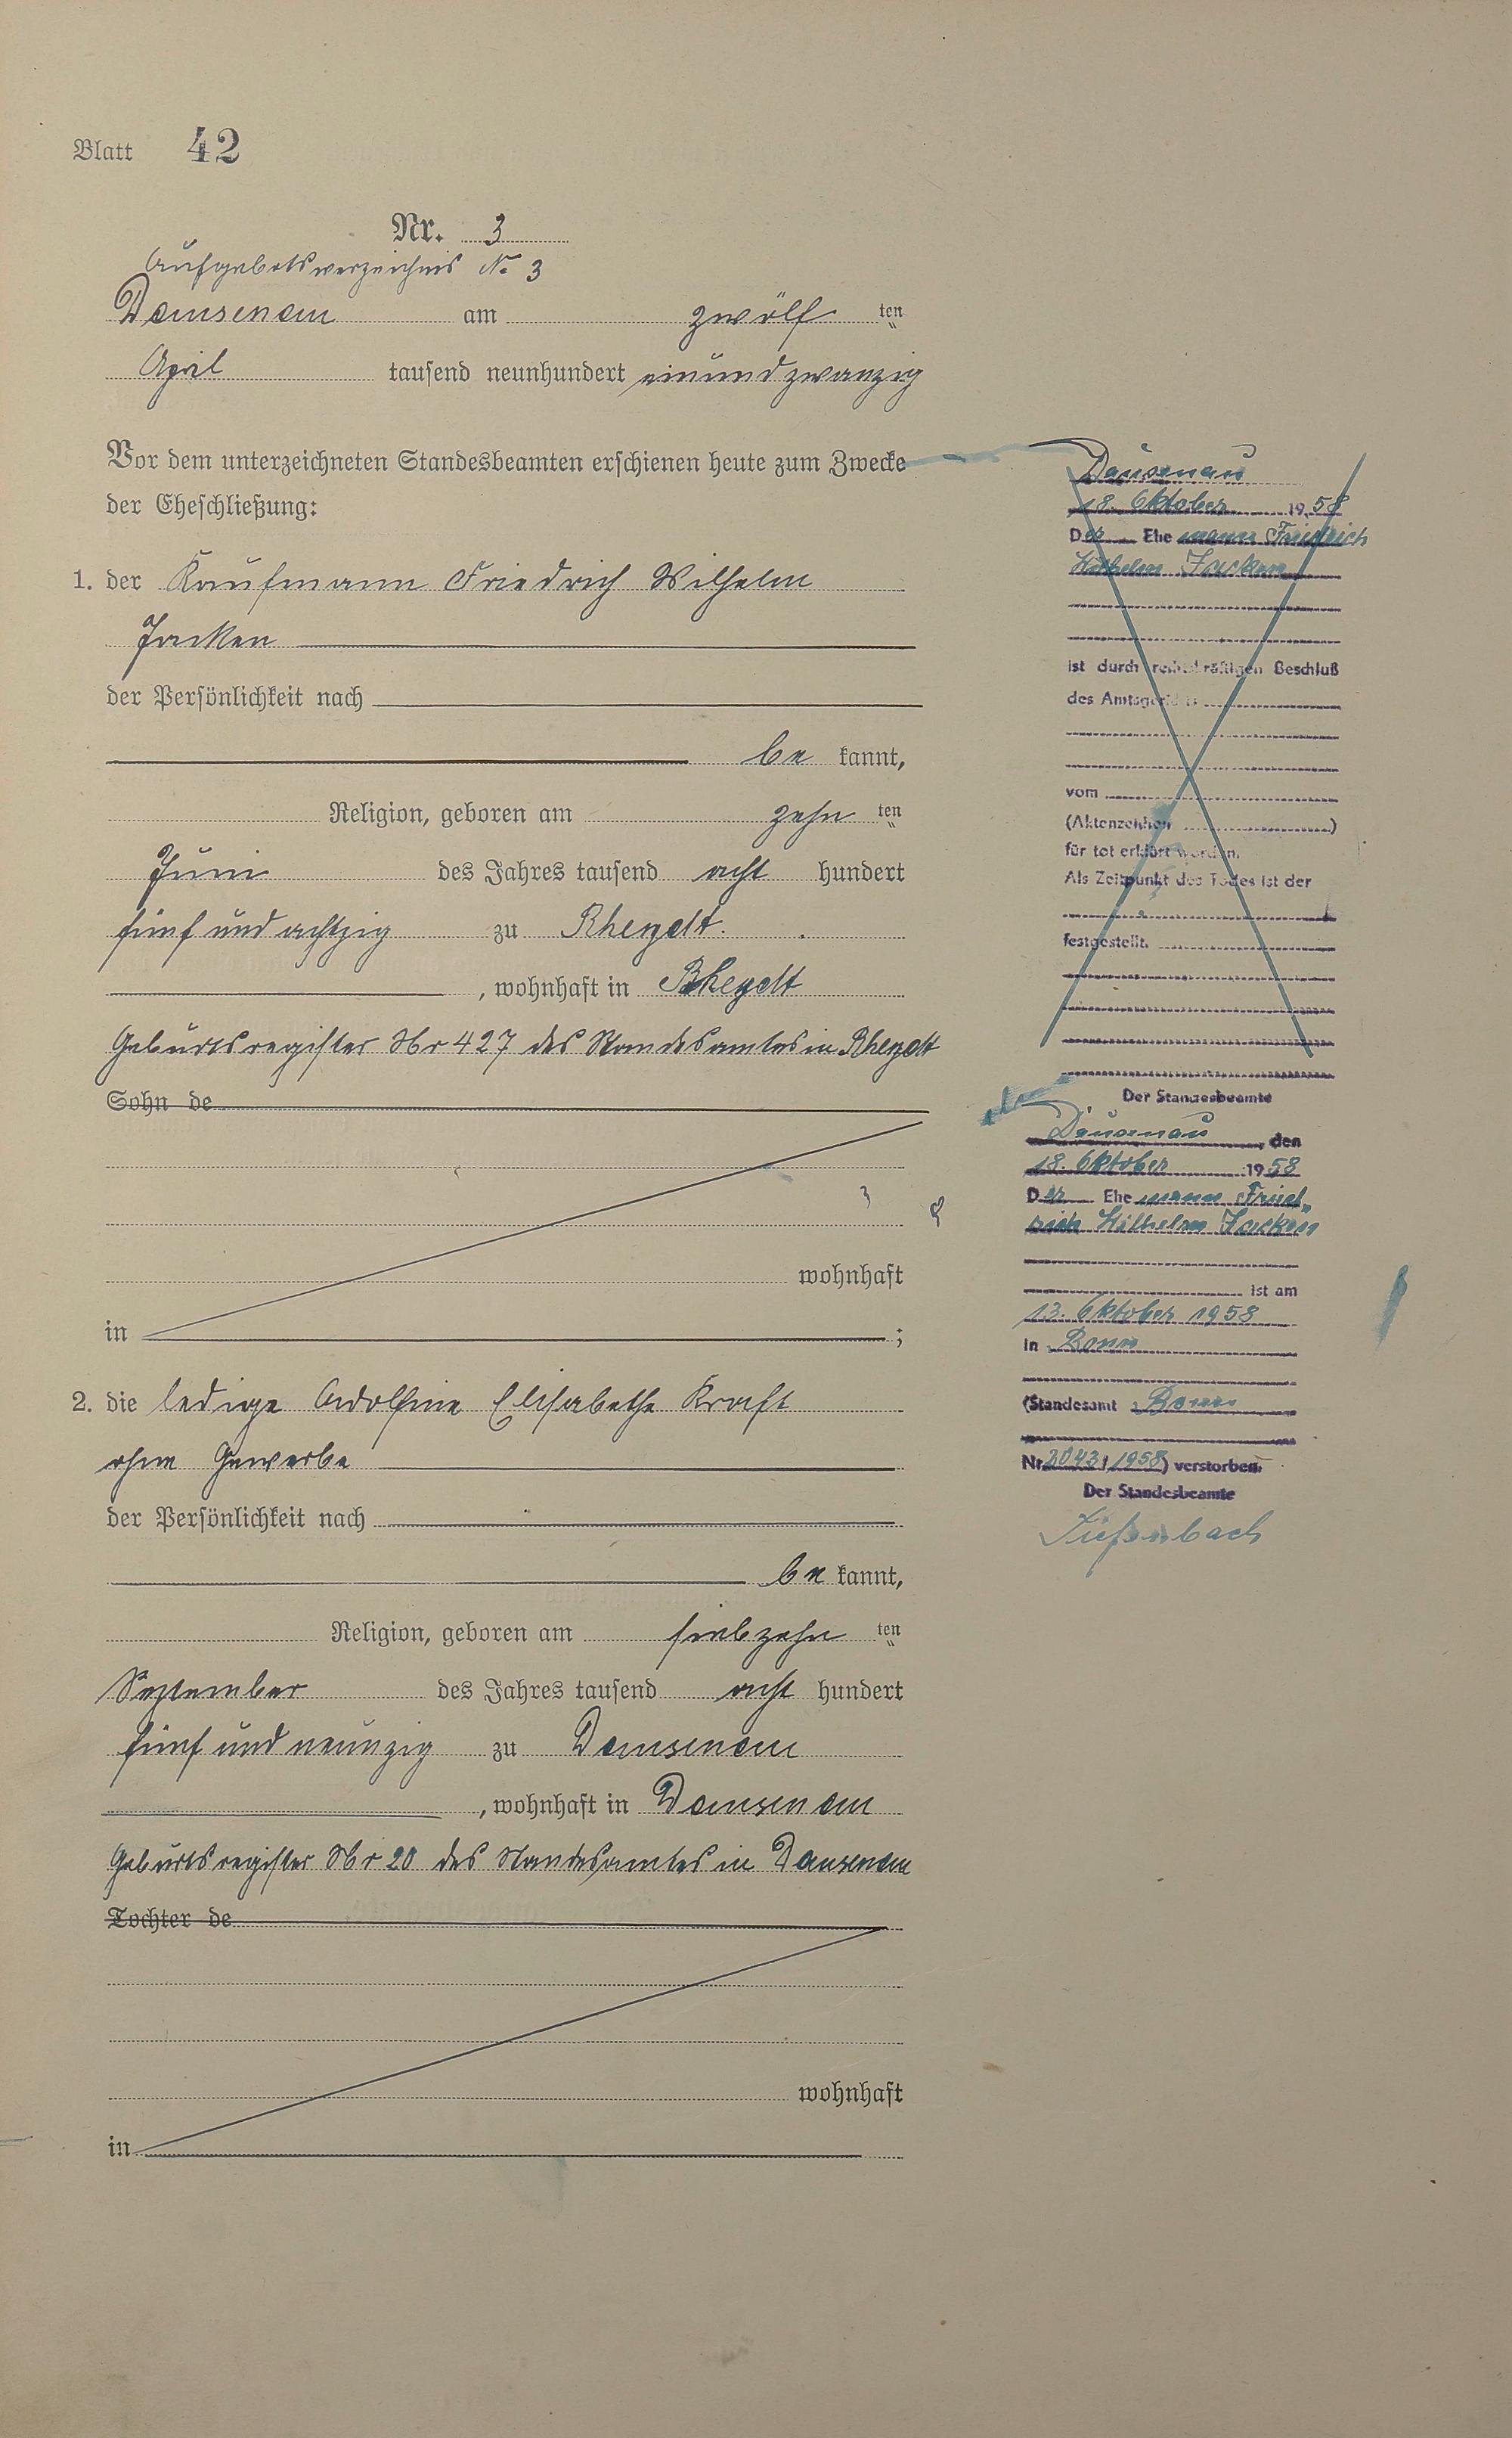 Blatt 42
Nr. 3
Aufgebotsverzeichnis No 3
Dausenau am zwölf ten
April tausend neunhundert einundzwanzig
Vor dem unterzeichneten Standesbeamten erschienen heute zum Zwecke
der Eheschließung:
1. der Kaufmann Friedrich Wilhelm
Jacken
der Persönlichkeit nach
be kannt,
Religion, geboren am zehn ten
Juni des Jahres tausend acht hundert
fünf und achtzig zu Rheydt.
, wohnhaft in Rheydt
Geburtsregister Nr 427 des Standesamtes in Rheydt
Sohn de
wohnhaft
in ;
2. die ledige Adolfine Elisabethe Kraft
ohne Gewerbe
der Persönlichkeit nach
be kannt,
Religion, geboren am siebzehn ten
September des Jahres tausend acht hundert
fünf und neunzig zu Dausenau
, wohnhaft in Dausenau
Geburtsregister Nr 20 des Standesamtes in Dausenau
Tochter de
wohnhaft
in
Dausenau
18. Oktober 1958
Der Ehemann Friedrich
Wilhelm Jacken
ist durch rechtskräftigen Beschluß
des Amtsgerichts
vom
(Aktenzeichen )
für tot erklärt worden.
Als Zeitpunkt des Todes ist der
festgestellt.
Der Standesbeamte
Dausenau, den
18. Oktober 1958
Der Ehemann Fried„
rich Wilhelm Jacken
ist am
13. Oktober 1958
in Bonn
(Standesamt Bonn
Nr 2043/1958) verstorben.
Der Standesbeamte
Tiefenbach